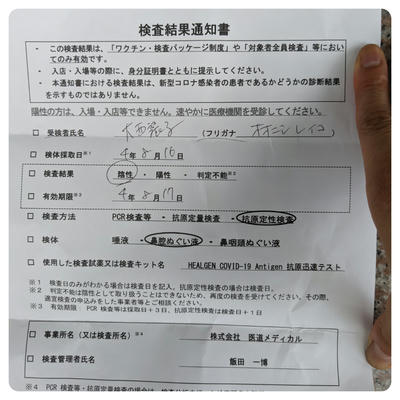 検査結果通知書
- この検査結果は、「ワクチン・検査パッケージ制度」や「対象者全員検査」等において
のみ有効です。
- 入店・入場等の際に、身分証明書とともに提示してください。
- 本通知書における検査結果は、新型コロナ感染者の患者であるかどうかの診断結果
を示すものではありません。
陽性の方は、入場・入店等できません。速やかに医療機関を受診してください。
□ 受検者氏名 (フリガナ
□ 検体採取日※1 4年8月16日
□ 検査結果 陰性 ・ 陽性 ・ 判定不能※2
□ 有効期限※3 4年8月17日
□ 検査方法 PCR検査等 ・ 抗原定量検査 ・ 抗原定性検査
□ 検体 唾液 ・ 鼻腔ぬぐい液 ・ 鼻咽頭ぬぐい液
□ 使用した検査試薬又は検査キット名 HEALGEN COVID-19 Antigen 抗原迅速テスト
※1 検査日のみがわかる場合は検査日を記入。抗原定性検査の場合は検査日。
※2 判定不能は陰性として取り扱うことはできないため、再度の検査を受けてください。その際、
適宜検査の申込みをした事業者等とご相談ください。
※3 有効期限: PCR 検査等は採取日+3日、抗原定性検査は検査日+1日
□ 事業所名(又は検査所名)※4 株式会社 医道メディカル
□ 検査管理者氏名 飯田 一博